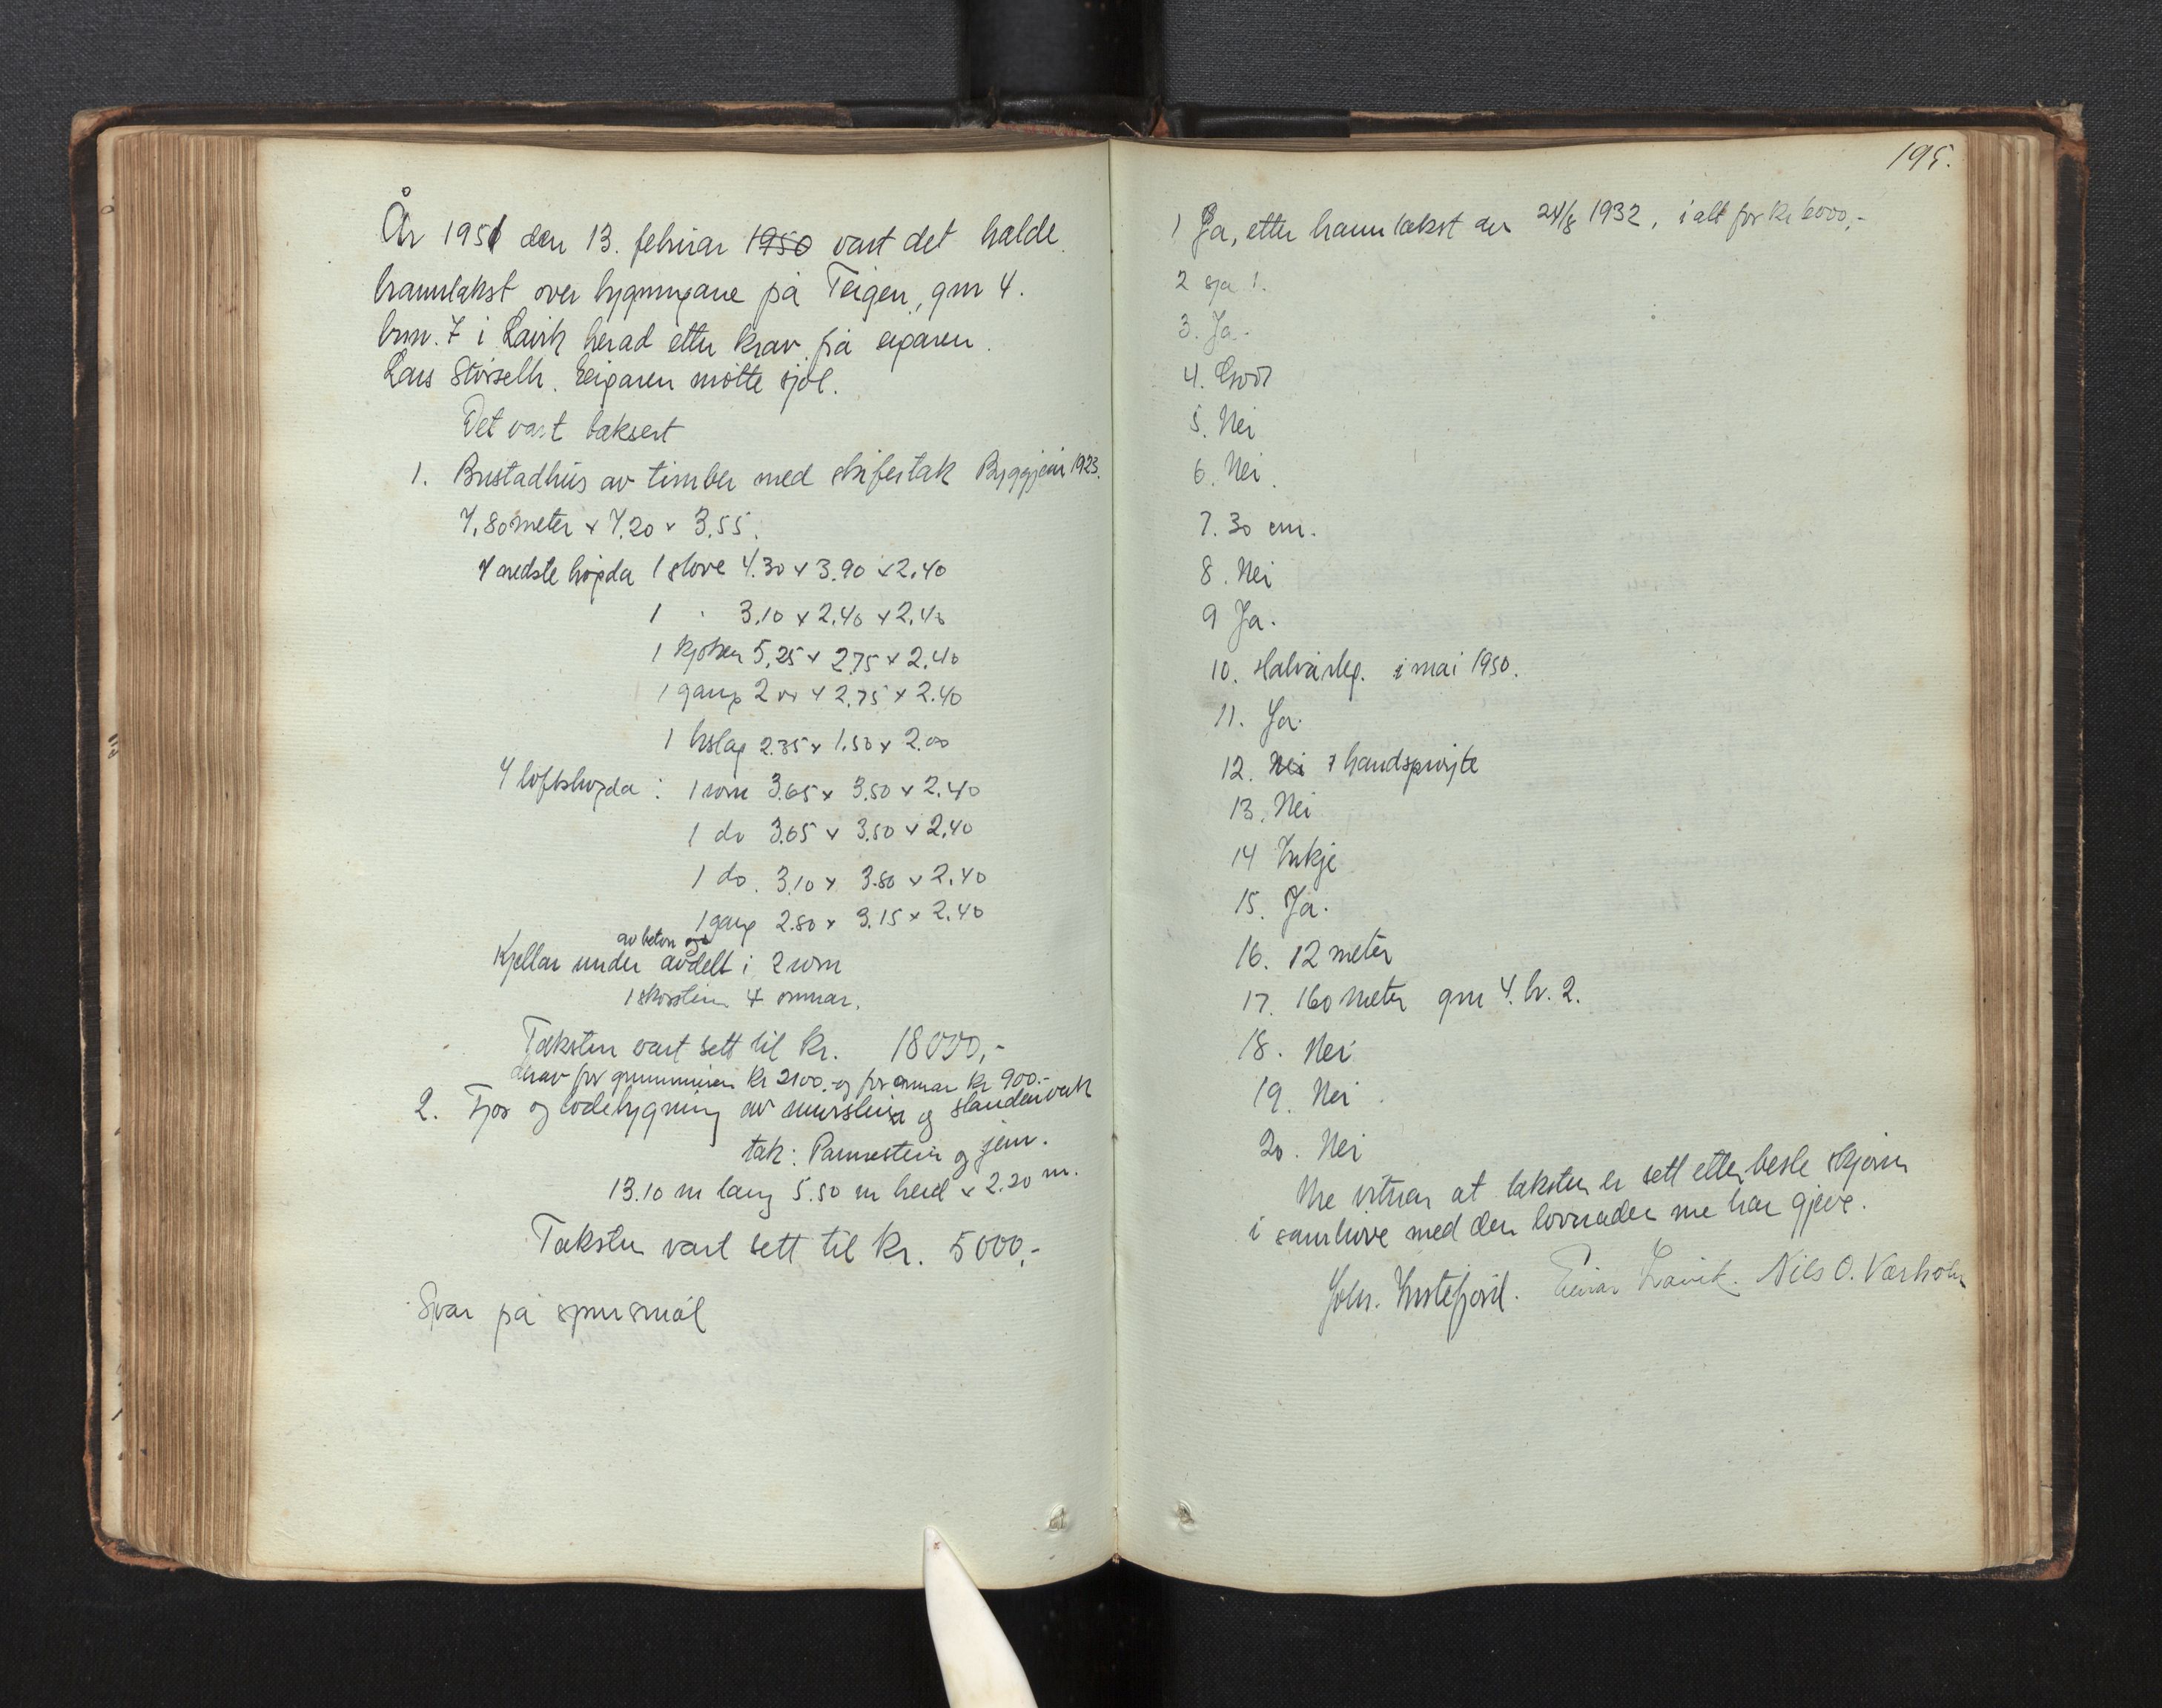 År 1951 den 13. februar 1950 vart det halde
branntakst over bygningane på Teigen, gnr 4.
bnr. 7 i Lavik herad etter krav frå eigaren
Lars Eigaren møtte sjøl.
Det vart taksert
1. Bustadhus av timber med skifertak Byggjeår 1923.
7,80 meter x 7.20 x 3.55.
I nedste høgda 1 stove 4.30 x 3.90 x 2.40
1 " 3.10 x 2.40 x 2.40
1 kjøken 5,25 x 2.75 x 2.40
1 gang 2 x 2.75 x 2.40
1 bislag 2.35 x 1.50 x 2.00
I loftshøgda : 1 rom 3.65 x 3.50 x 2.40
1 do 3.65 x 3.50 x 2.40
1 do. 3.10 x 3.80 x 2.40
1 gang 2.80 x 3.15 x 2.40
av beton og
Kjellar under avdelt i 2 rom
1 skorstein 4 omnar.
Taksten vart sett til kr. 18000,-
derav for grunnmuren kr 2100.- og for omnar kr 900.-
2. Fjøs og lødebygning av murstein og standarverk
tak: Pannestein og jern.
13.10 m lang 5.50 m breid x 2.20 m.
Taksten vart sett til kr. 5000,-
Svar på spursmål
195.
1 Ja, etter branntakst av 24/8 1932, i alt for kr 6000,-
2 sja 1.
3. Ja.
4. God
5. Nei
6. Nei.
7. 30 cm.
8. Nei
9 Ja.
10. Halvårleg. i mai 1950.
11. Ja.
12. Nei 1 handsprøjte
13. Nei
14 Inkje
15. Ja.
16. 12 meter
17. 160 meter gnr 4. br. 2.
18. Nei
19. Nei
20. Nei
Me vitnar at taksten er sett etter beste skjøn
i samhøve med den lovnaden me har gjeve.
Johs. Einar Lavik. Nils O.Værholm